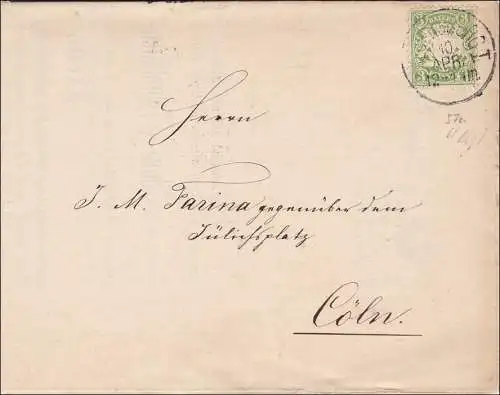 BAYERN
10.
APR
12
Herrn
J. M. Farina gegenüber dem
Jülichsplatz
Cöln.